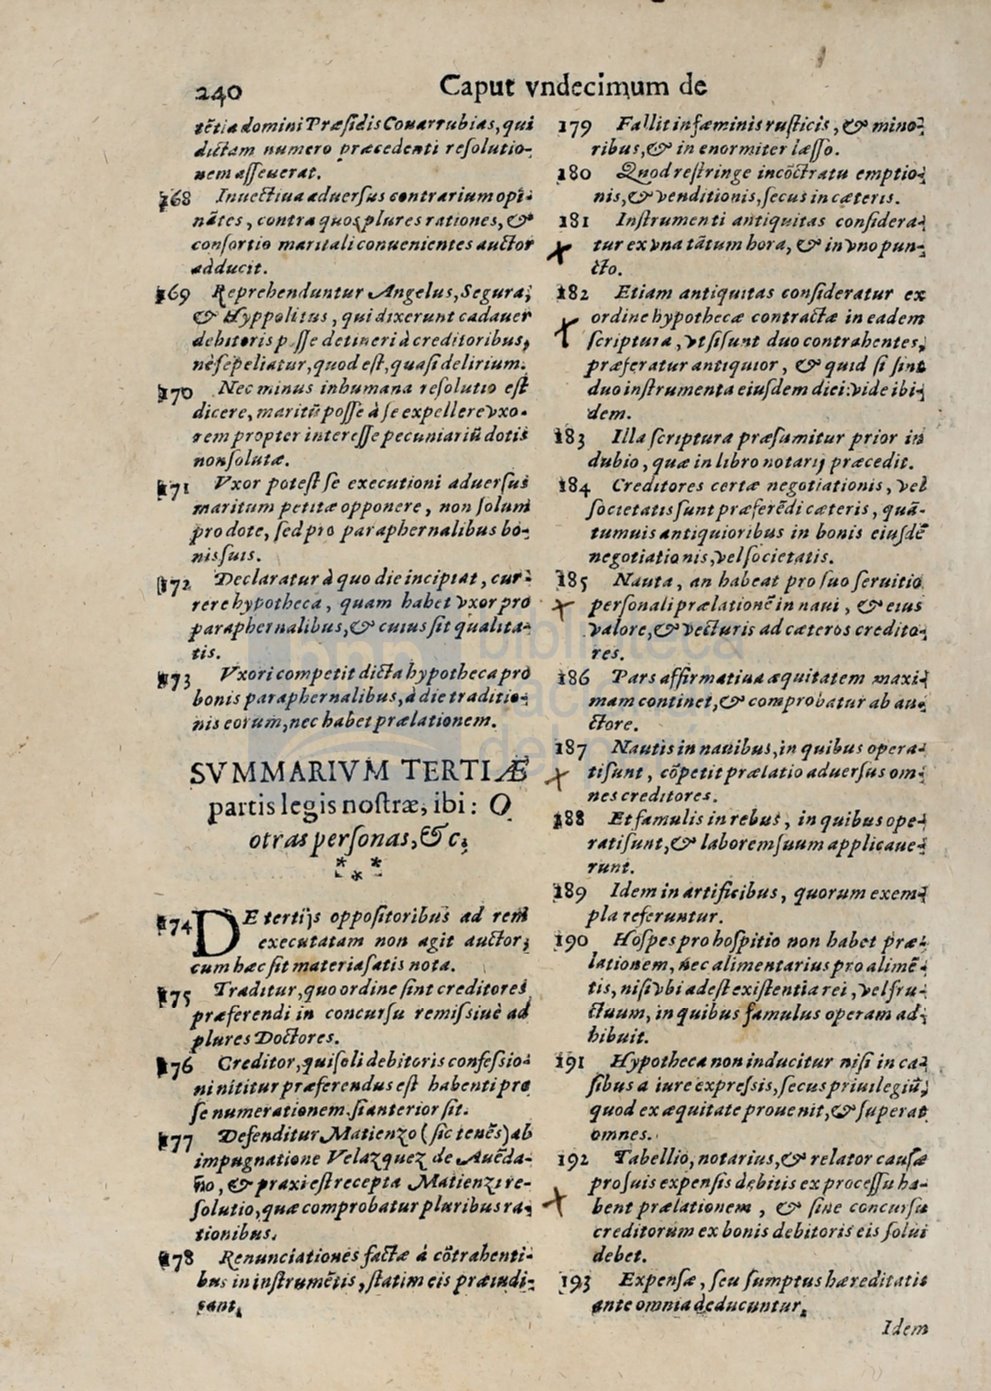 240
Caput vndecimum de
tẽtia domini Præſidis Couarrubias, qui
dictam numero præcedenti reſolutio-
nem aſſeuerat.
168 Inuectiua aduerſus contrarium opi-
nãtes, contra quos plures rationes, &
conſortio maritali conuenientes auctor
adducit.
169 Reprehenduntur Angelus, Segura,
& Hyppolitus, qui dixerunt cadauer
debitoris poſſe detineri à creditoribus,
nè ſepeliatur, quod eſt, quaſi delirium.
170 Nec minus inhumana reſolutio eſt
dicere, maritũ poſſe à ſe expellere vxo-
rem propter intereſſe pecuniariũ dotis
non ſolutæ.
171 Vxor poteſt ſe executioni aduerſus
maritum petitæ opponere, non ſolum
pro dote, ſed pro paraphernalibus bo-
nis ſuis.
172 Declaratur à quo die incipiat, cur-
rere hypotheca, quam habet vxor pro
paraphernalibus, & cuius ſit qualita-
tis.
173 Vxori competit dicta hypotheca pro
bonis paraphernalibus, à die traditio-
nis eorum, nec habet prælationem.
SVMMARIVM TERTIÆ
partis legis noſtræ, ibi: O
otras perſonas, & c.
* * *
174 DE tertijs oppoſitoribus ad rem
executatam non agit auctor,
cum hæc ſit materia ſatis nota.
175 Traditur, quo ordine ſint creditores
præferendi in concurſu remiſsiuè ad
plures Doctores.
176 Creditor, qui ſoli debitoris confeſsio-
ni nititur præferendus eſt habenti pro
ſe numerationem, ſi anterior ſit.
177 Defenditur Matienzo (ſic tenẽs) ab
impugnatione Velazquez de Auẽda-
ño, & praxi eſt recepta Matienzi re-
ſolutio, quæ comprobatur pluribus ra-
tionibus.
178 Renunciationes factæ à cõtrahenti-
bus in inſtrumẽtis, ſtatim eis præiudi-
cant.
179 Fallit in fæminis ruſticis, & mino-
ribus, & in enormiter læſſo.
180 Quod reſtringe in cõtractu emptio-
nis, & venditionis, ſecus in cæteris.
181 Inſtrumenti antiquitas conſidera-
tur ex vna tãtum hora, & in vno pun-
cto.
182 Etiam antiquitas conſideratur ex
ordine hypothecæ contractæ in eadem
ſcriptura, vt ſi ſunt duo contrahentes,
præferatur antiquior, & quid ſi ſint
duo inſtrumenta eiuſdem diei: vide ibi-
dem.
183 Illa ſcriptura præſumitur prior in
dubio, quæ in libro notarij præcedit.
184 Creditores certæ negotiationis, vel
ſocietatis ſunt præferẽdi cæteris, quã-
tumuis antiquioribus in bonis eiuſdẽ
negotiationis, vel ſocietatis.
185 Nauta, an habeat pro ſuo ſeruitio
perſonali prælationẽ in naui, & eius
valore, & vecturis ad cæteros credito-
res.
186 Pars affirmatiua æquitatem maxi-
mam continet, & comprobatur ab au-
ctore.
187 Nautis in nauibus, in quibus opera-
ti ſunt, cõpetit prælatio aduerſus om-
nes creditores.
188 Et famulis in rebus, in quibus ope-
rati ſunt, & laborem ſuum applicaue-
runt.
189 Idem in artificibus, quorum exem-
pla referuntur.
190 Hoſpes pro hoſpitio non habet præ-
lationem, nec alimentarius pro alimẽ-
tis, niſi vbi adeſt exiſtentia rei, vel fru-
ctuum, in quibus famulus operam ad-
hibuit.
191 Hypotheca non inducitur niſi in ca-
ſibus a iure expreſsis, ſecus priuilegiũ,
quod ex æquitate prouenit, & ſuperat
omnes.
192 Tabellio, notarius, & relator cauſæ
pro ſuis expenſis debitis ex proceſſu ha-
bent prælationem, & ſine concurſu
creditorum ex bonis debitoris eis ſolui
debet.
193 Expenſæ, ſeu ſumptus hæreditatis
ante omnia deducuntur.
Idem